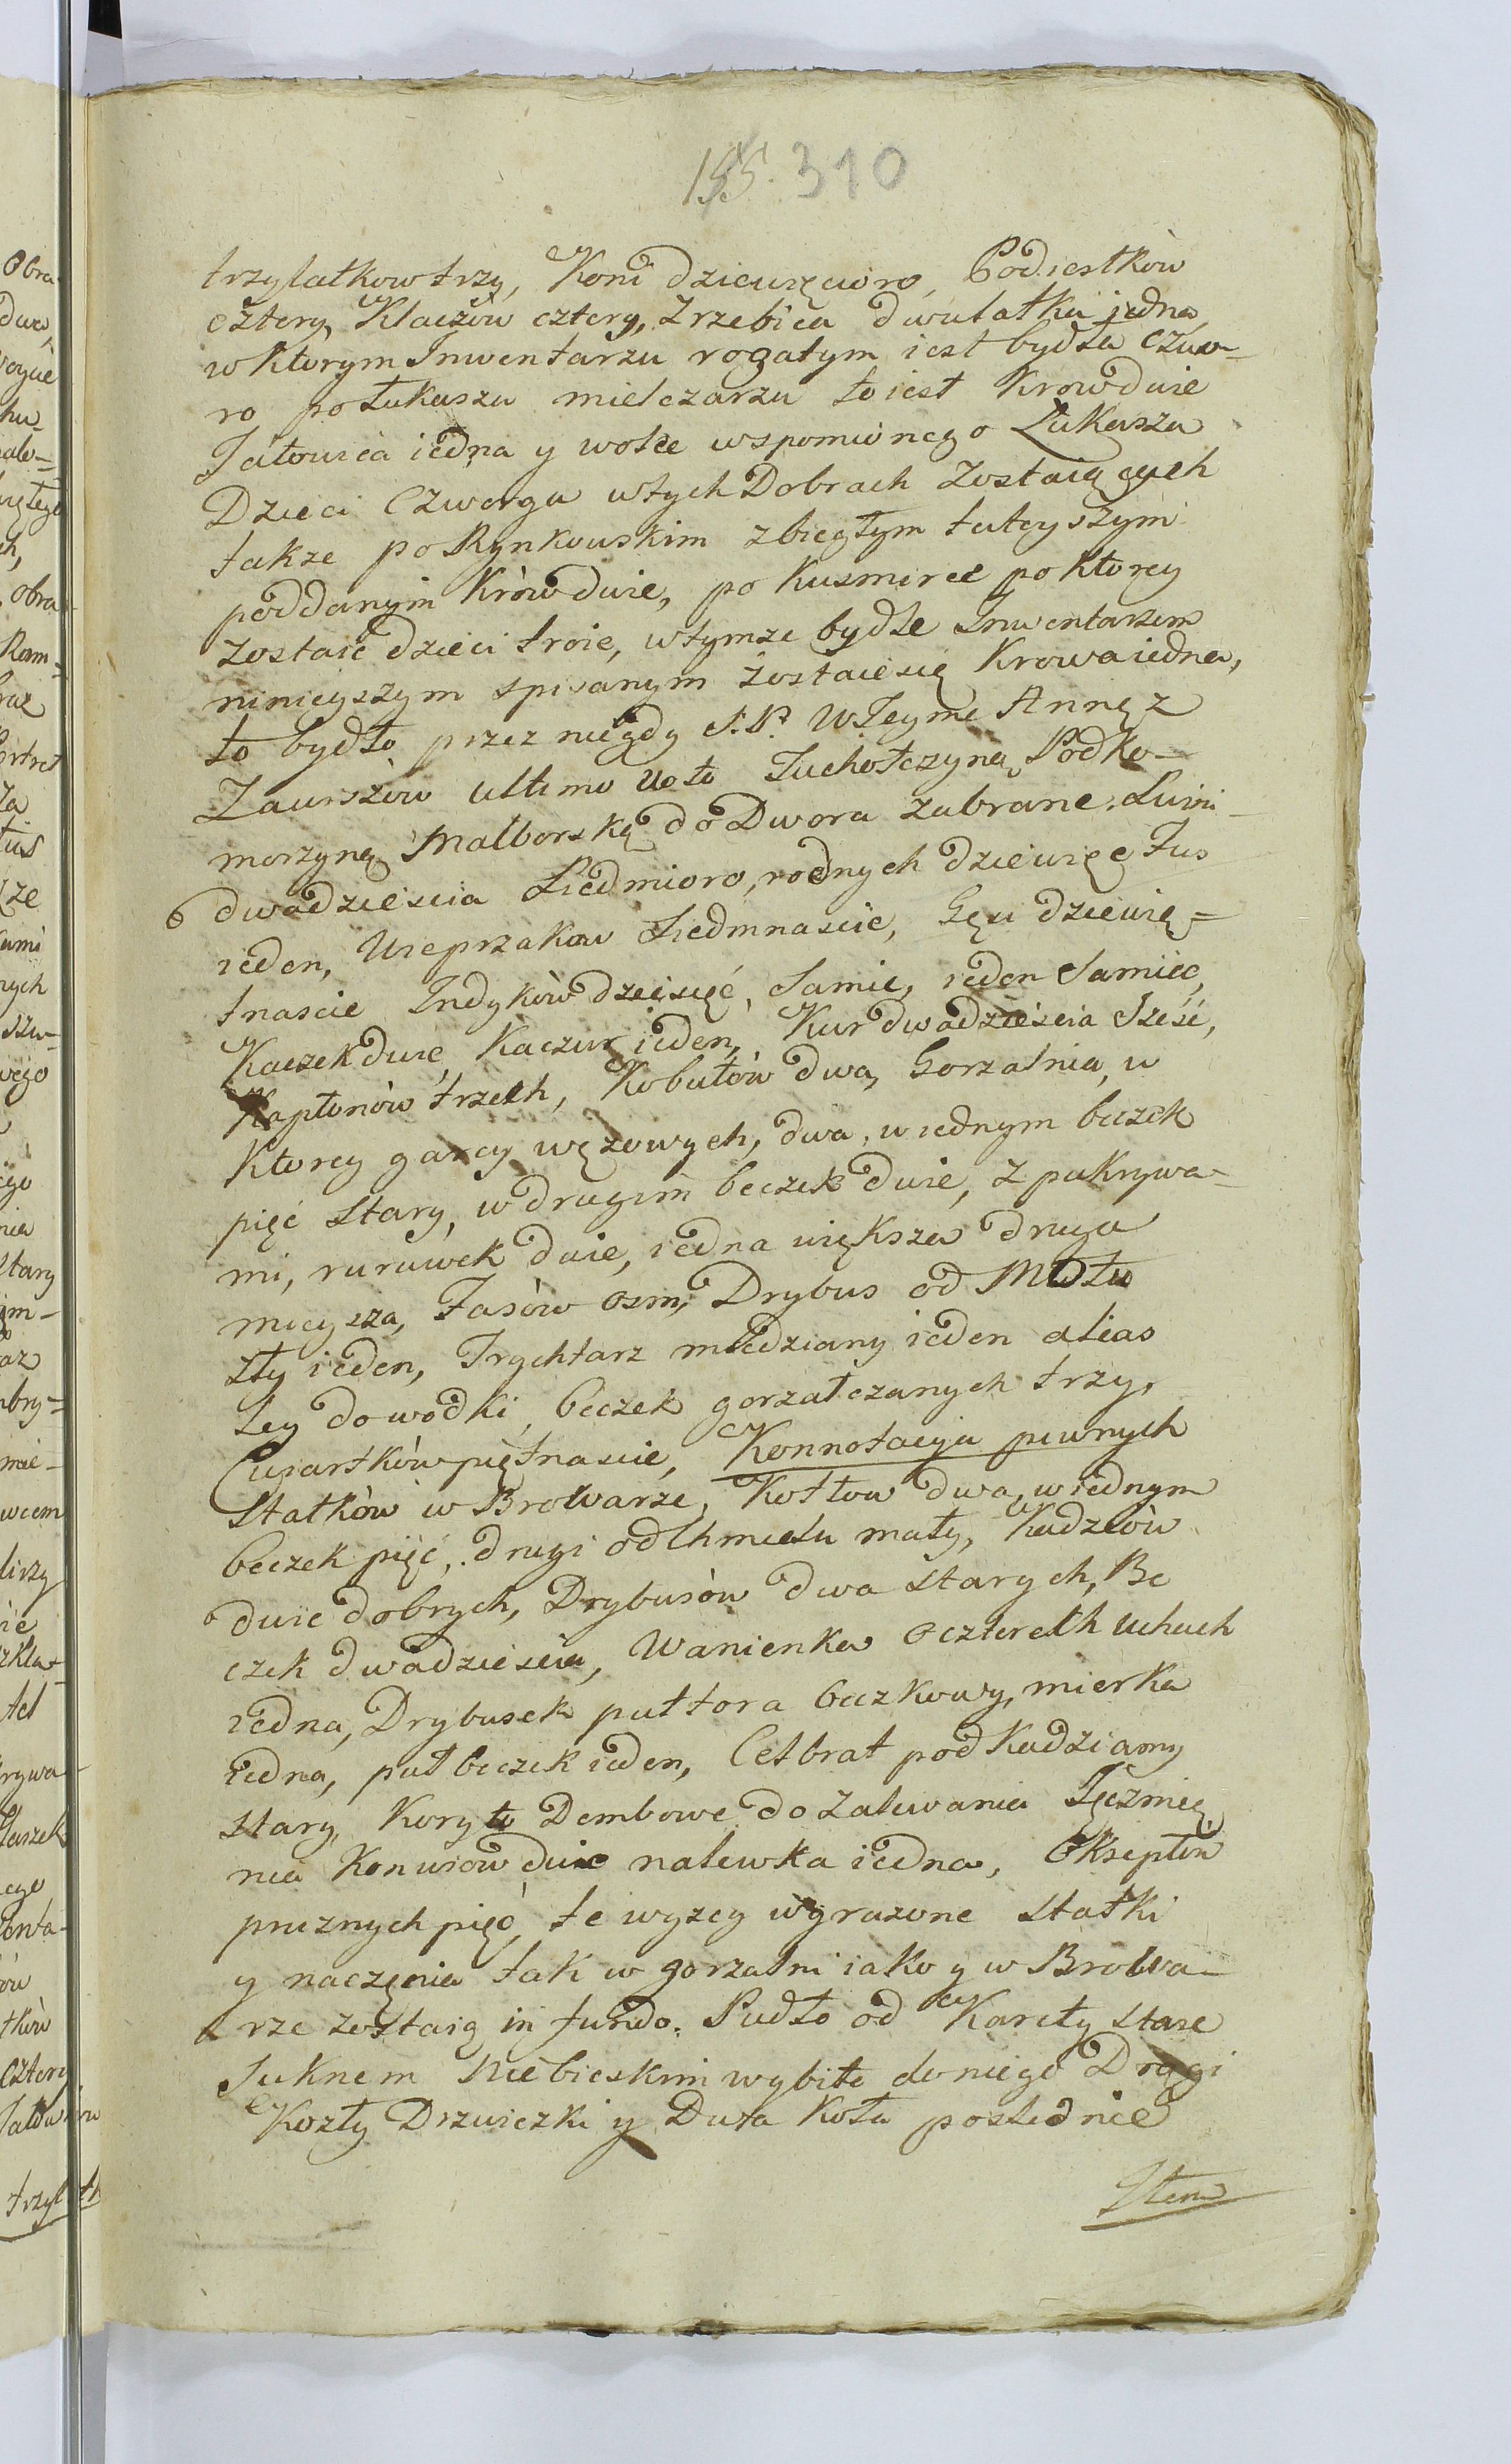 155. 310
trzylatkow trzy, Koni dziewięcioro, Podiezdków
cztery, Klaczów cztery, Zrzebica dwulatka jedna
w którym Inwentarzu rogatym iest bydła Czwo-
ro po Łukaszu mielczarzu to iest Krow dwie
Jałowica iedna y wołce wspomionego Łukasza
Dzieci Czworga w tych Dobrach zostaiących
takze po Rynkowskim zbiegłym tuteyszym
poddanym Krów dwie, po Kusmirce po ktorey
zostaie dzieci troie, w tymze bydle Inwentarzem
ninieyszym spisanym zostaie się Krowa iedna,
to bydło przez niegdy S. P. WJeyme Annę z
Zawiszów ultimo voto Tuchołczyną Podko-
morzyną Malborską do Dwora zabrane. Swini
dwadziescia Siedmioro, rodnych dziewięc Jus
ieden, Wieprzakow Siedmnascie, Gęsi dziewię-
tnascie Indyków dziesięć, Samic, ieden Samiec,
Kaczek dwie, Kaczur ieden, Kur dwadziescia Sześć,
Kapłonów trzech, Kobutów dwa, Gorzalnia, w
Ktorey garcy węzowych, dwa, w iednym beczek
pięć stary, w drugim beczek dwie, z pokrywa-
mi, rurówek dwie, iedna większa druga
mieysza, Fasów osm, Drybus od Motu
zły ieden, Trychtarz miedziany ieden alias
Ley do wodki, beczek gorzałczanych trzy,
Cwiartków piętnascie, Konnotacya piwnych
Statków w Browarze, Kotłow dwa, w iednym
beczek pięć, drugi od Chmielu mały, Kadziów
dwie dobrych, Drybusów dwa starych, Be
czek dwadziescia, Wanienka o czterech uchach
iedna, Drybusek pułtora beczkowy, mierka
iedna, puł beczek ieden, Celbrat pod Kadziamy
stary, Koryto Dembowe do Zalewania Jęczmię
nia Konwiow dwie nalewka iedna, Okseptów
prużnych pięć, te wyzey wyrazone statki
y naczęnia tak w gorzalni iako y w Browa-
rze zostaią in fundo. Pudło od Karety stare
Suknem Niebieskim wybite do niego Drągi
Kozły Drzwiczki y Dwa koła poslednie
Item